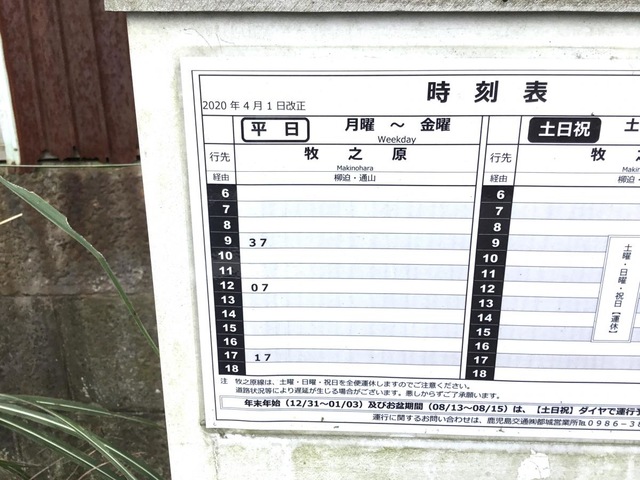 時刻表
2020年4月1日改正
平日 月曜 ～ 金曜
Weekday
土日祝 土
行先 牧之原
Makinohara
行先 牧
Makin
経由 柳迫・通山
経由 柳迫
6
7
8
9 37
10
11
12 07
13
14
15
16
17 17
18
6
7
8
9
10
11
12
13
14
15
16
17
18
土曜・日曜・祝日【運休】
注 牧之原線は、土曜・日曜・祝日を全便運休しますのでご注意ください。
道路状況等により遅延が生じる場合がございます。悪しからずご了承願います。
年末年始（12/31～01/03）及びお盆期間（08/13～08/15）は、【土日祝】ダイヤで運行
運行に関するお問い合わせは、鹿児島交通㈱都城営業所℡0986-38